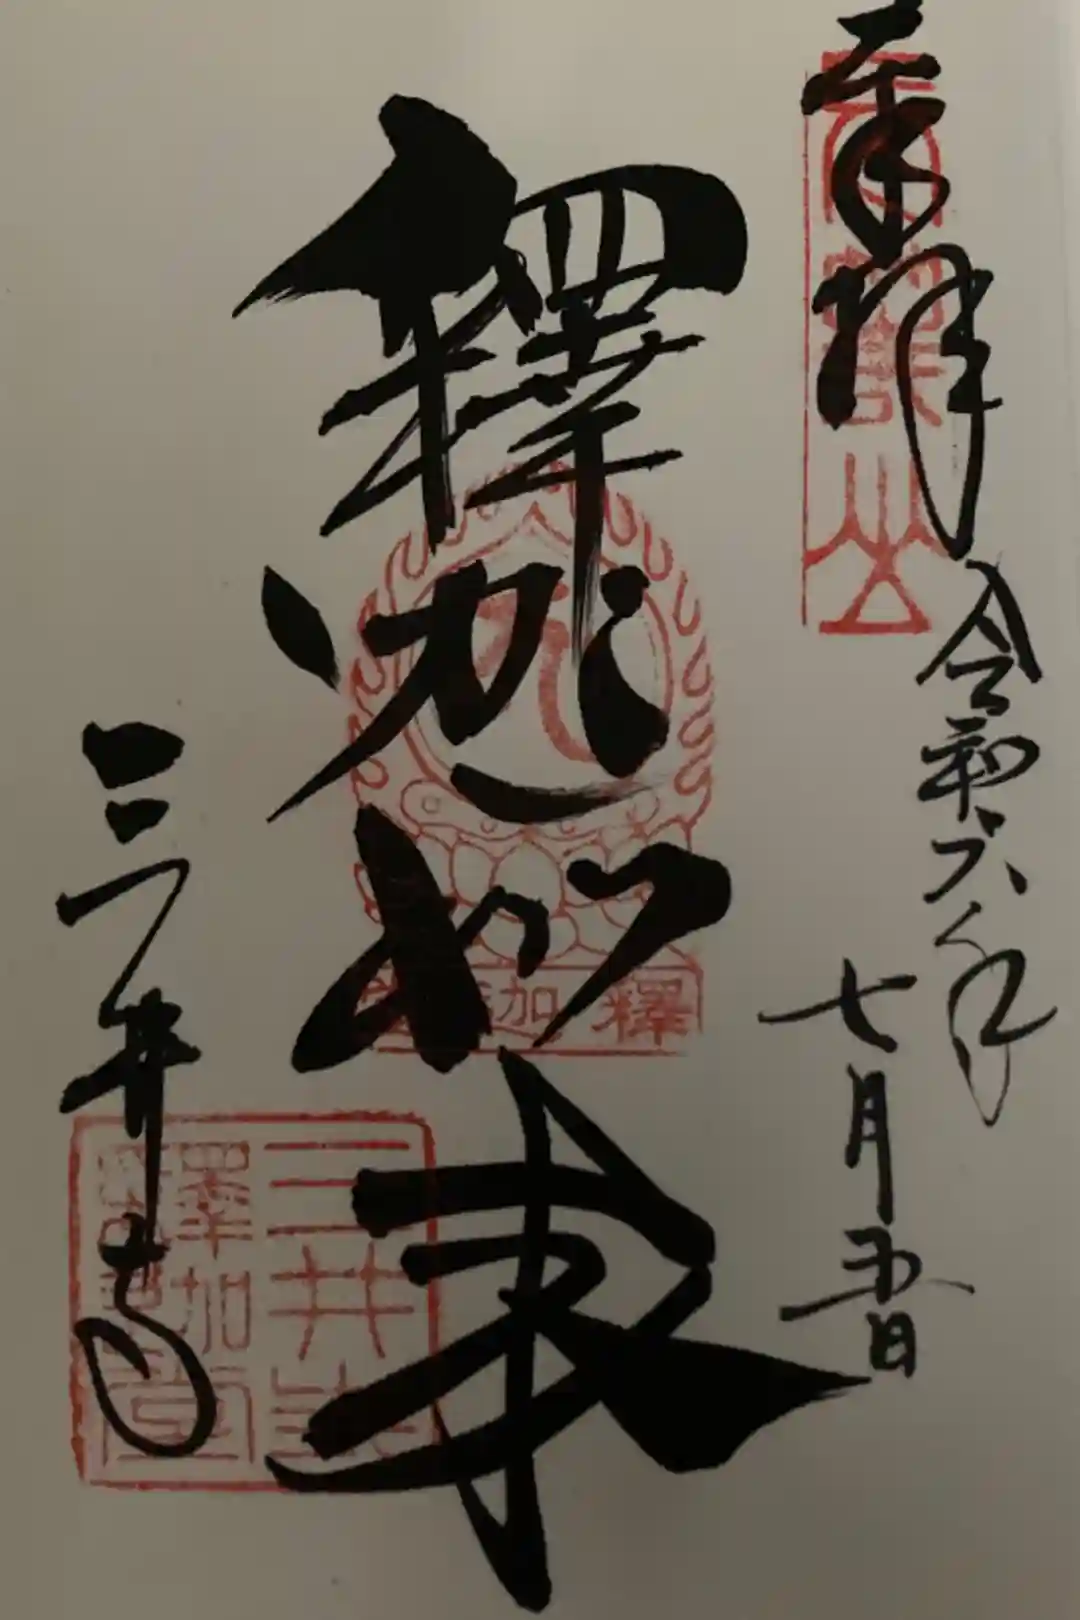 奉拝
令和六年
七月五日
釋迦如来
三井寺
釋迦
三井
釋迦
堂